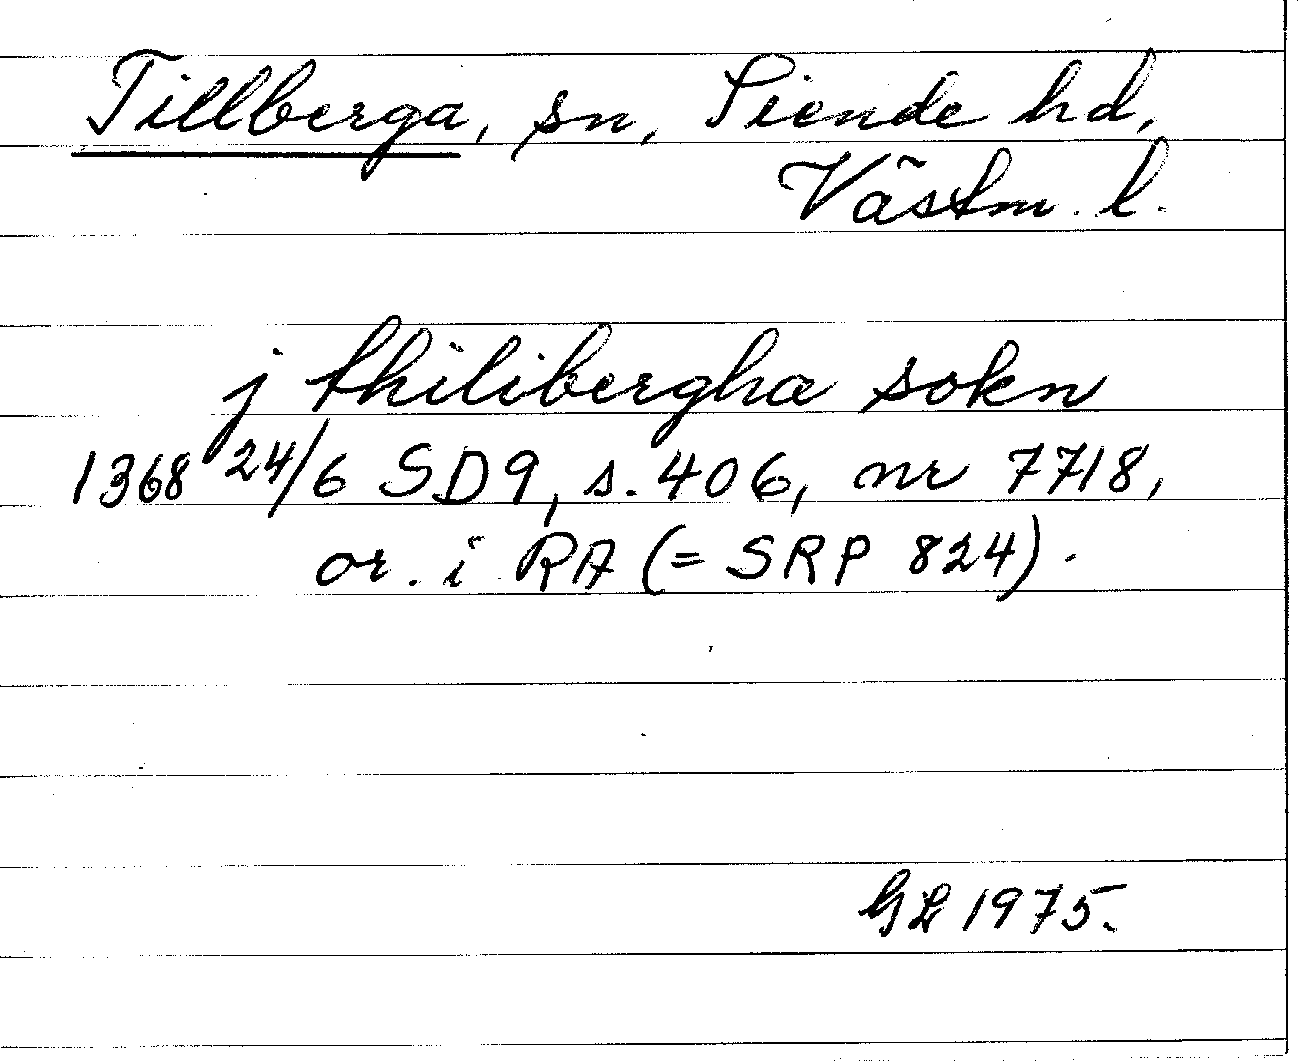 Tillberga, sn, Siende hd,
Västm. l.
j thilibergha sokn
1368 24/6 SD9, s. 406, nr 7718,
or. i RA (= SRP 824).
GL 1975.